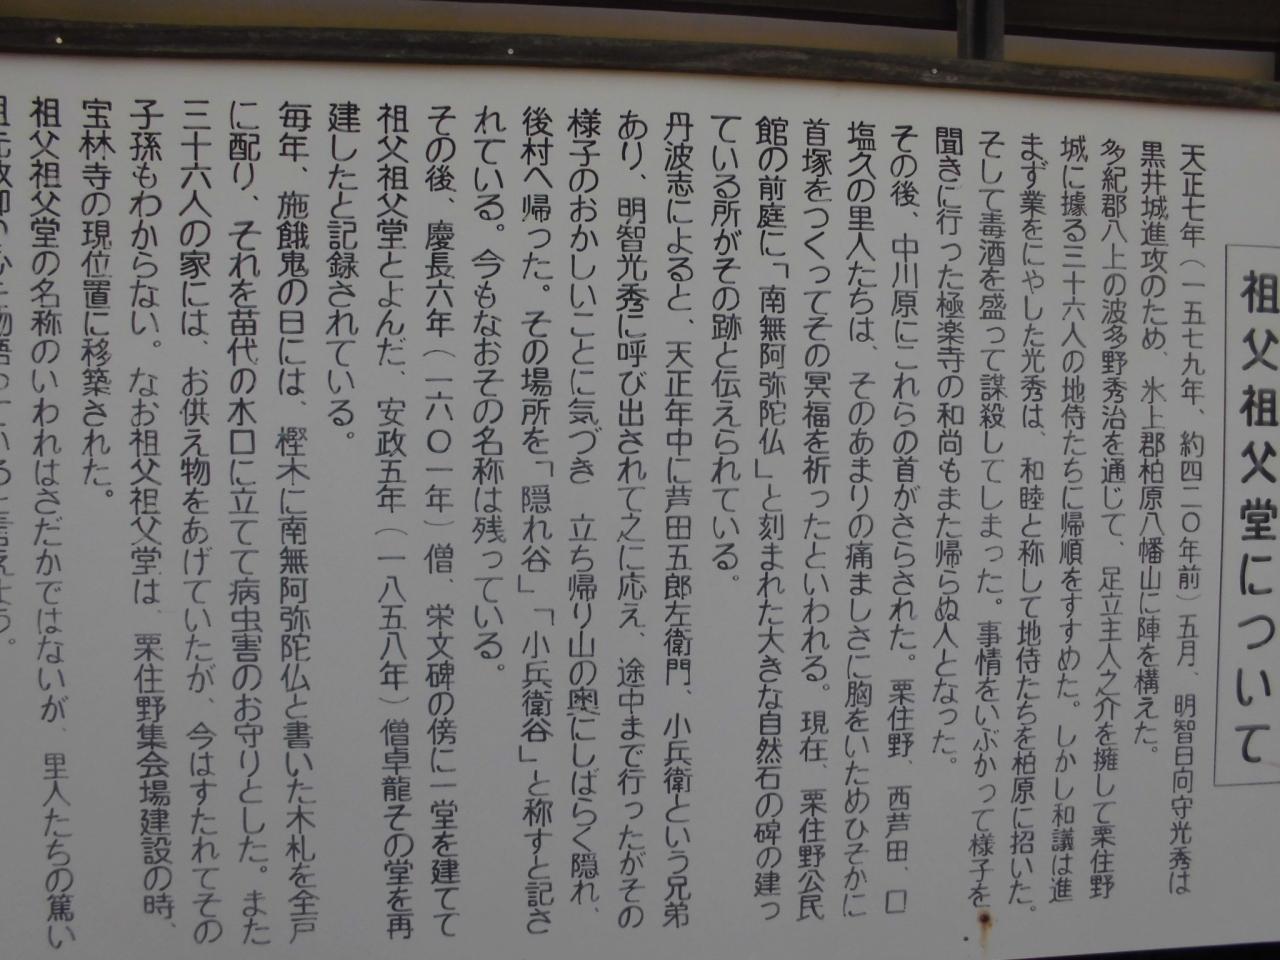 祖父祖父堂について
天正七年（一五七九年、約四二〇年前）五月、明智日向守光秀は
黒井城進攻のため、氷上郡柏原八幡山に陣を構えた。
多紀郡八上の波多野秀治を通じて、足立主人之介を擁して栗住野
城に據る三十六人の地侍たちに帰順をすすめた。しかし和議は進
まず業をにやした光秀は、和睦と称して地侍たちを柏原に招いた。
そして毒酒を盛って謀殺してしまった。事情をいぶかって様子を
聞きに行った極楽寺の和尚もまた帰らぬ人となった。
その後、中川原にこれらの首がさらされた。栗住野、西芦田、口
塩久の里人たちは、そのあまりの痛ましさに胸をいためひそかに
首塚をつくってその冥福を祈ったといわれる。現在、栗住野公民
館の前庭に「南無阿弥陀仏」と刻まれた大きな自然石の碑の建っ
ている所がその跡と伝えられている。
丹波志によると、天正年中に芦田五郎左衛門、小兵衛という兄弟
あり、明智光秀に呼び出されて之に応え、途中まで行ったがその
様子のおかしいことに気づき　立ち帰り山の奥にしばらく隠れ、
後村へ帰った。その場所を「隠れ谷」「小兵衛谷」と称すと記さ
れている。今もなおその名称は残っている。
その後、慶長六年（一六〇一年）僧、栄文碑の傍に一堂を建てて
祖父祖父堂とよんだ、安政五年（一八五八年）僧卓龍その堂を再
建したと記録されている。
毎年、施餓鬼の日には、樫木に南無阿弥陀仏と書いた木札を全戸
に配り、それを苗代の水口に立てて病虫害のお守りとした。また
三十六人の家には、お供え物をあげていたが、今はすたれてその
子孫もわからない。なお祖父祖父堂は、栗住野集会場建設の時、
宝林寺の現位置に移築された。
祖父祖父堂の名称のいわれはさだかではないが、里人たちの篤い